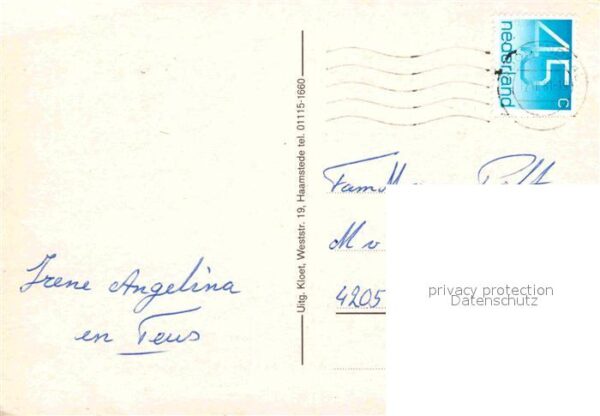 45 c
nederland
Uitg. Kloet, Weststr. 19, Haamstede tel. 01115-1660
Irene Angelina
en Teus
Fam
4205
privacy protection
Datenschutz